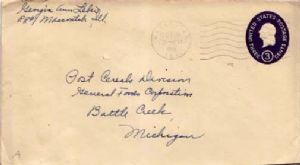 Georgia Ann
Ill.
UNITED STATES POSTAGE
3
Post Cereals Division
General Foods Corporation
Battle Creek,
Michigan
A